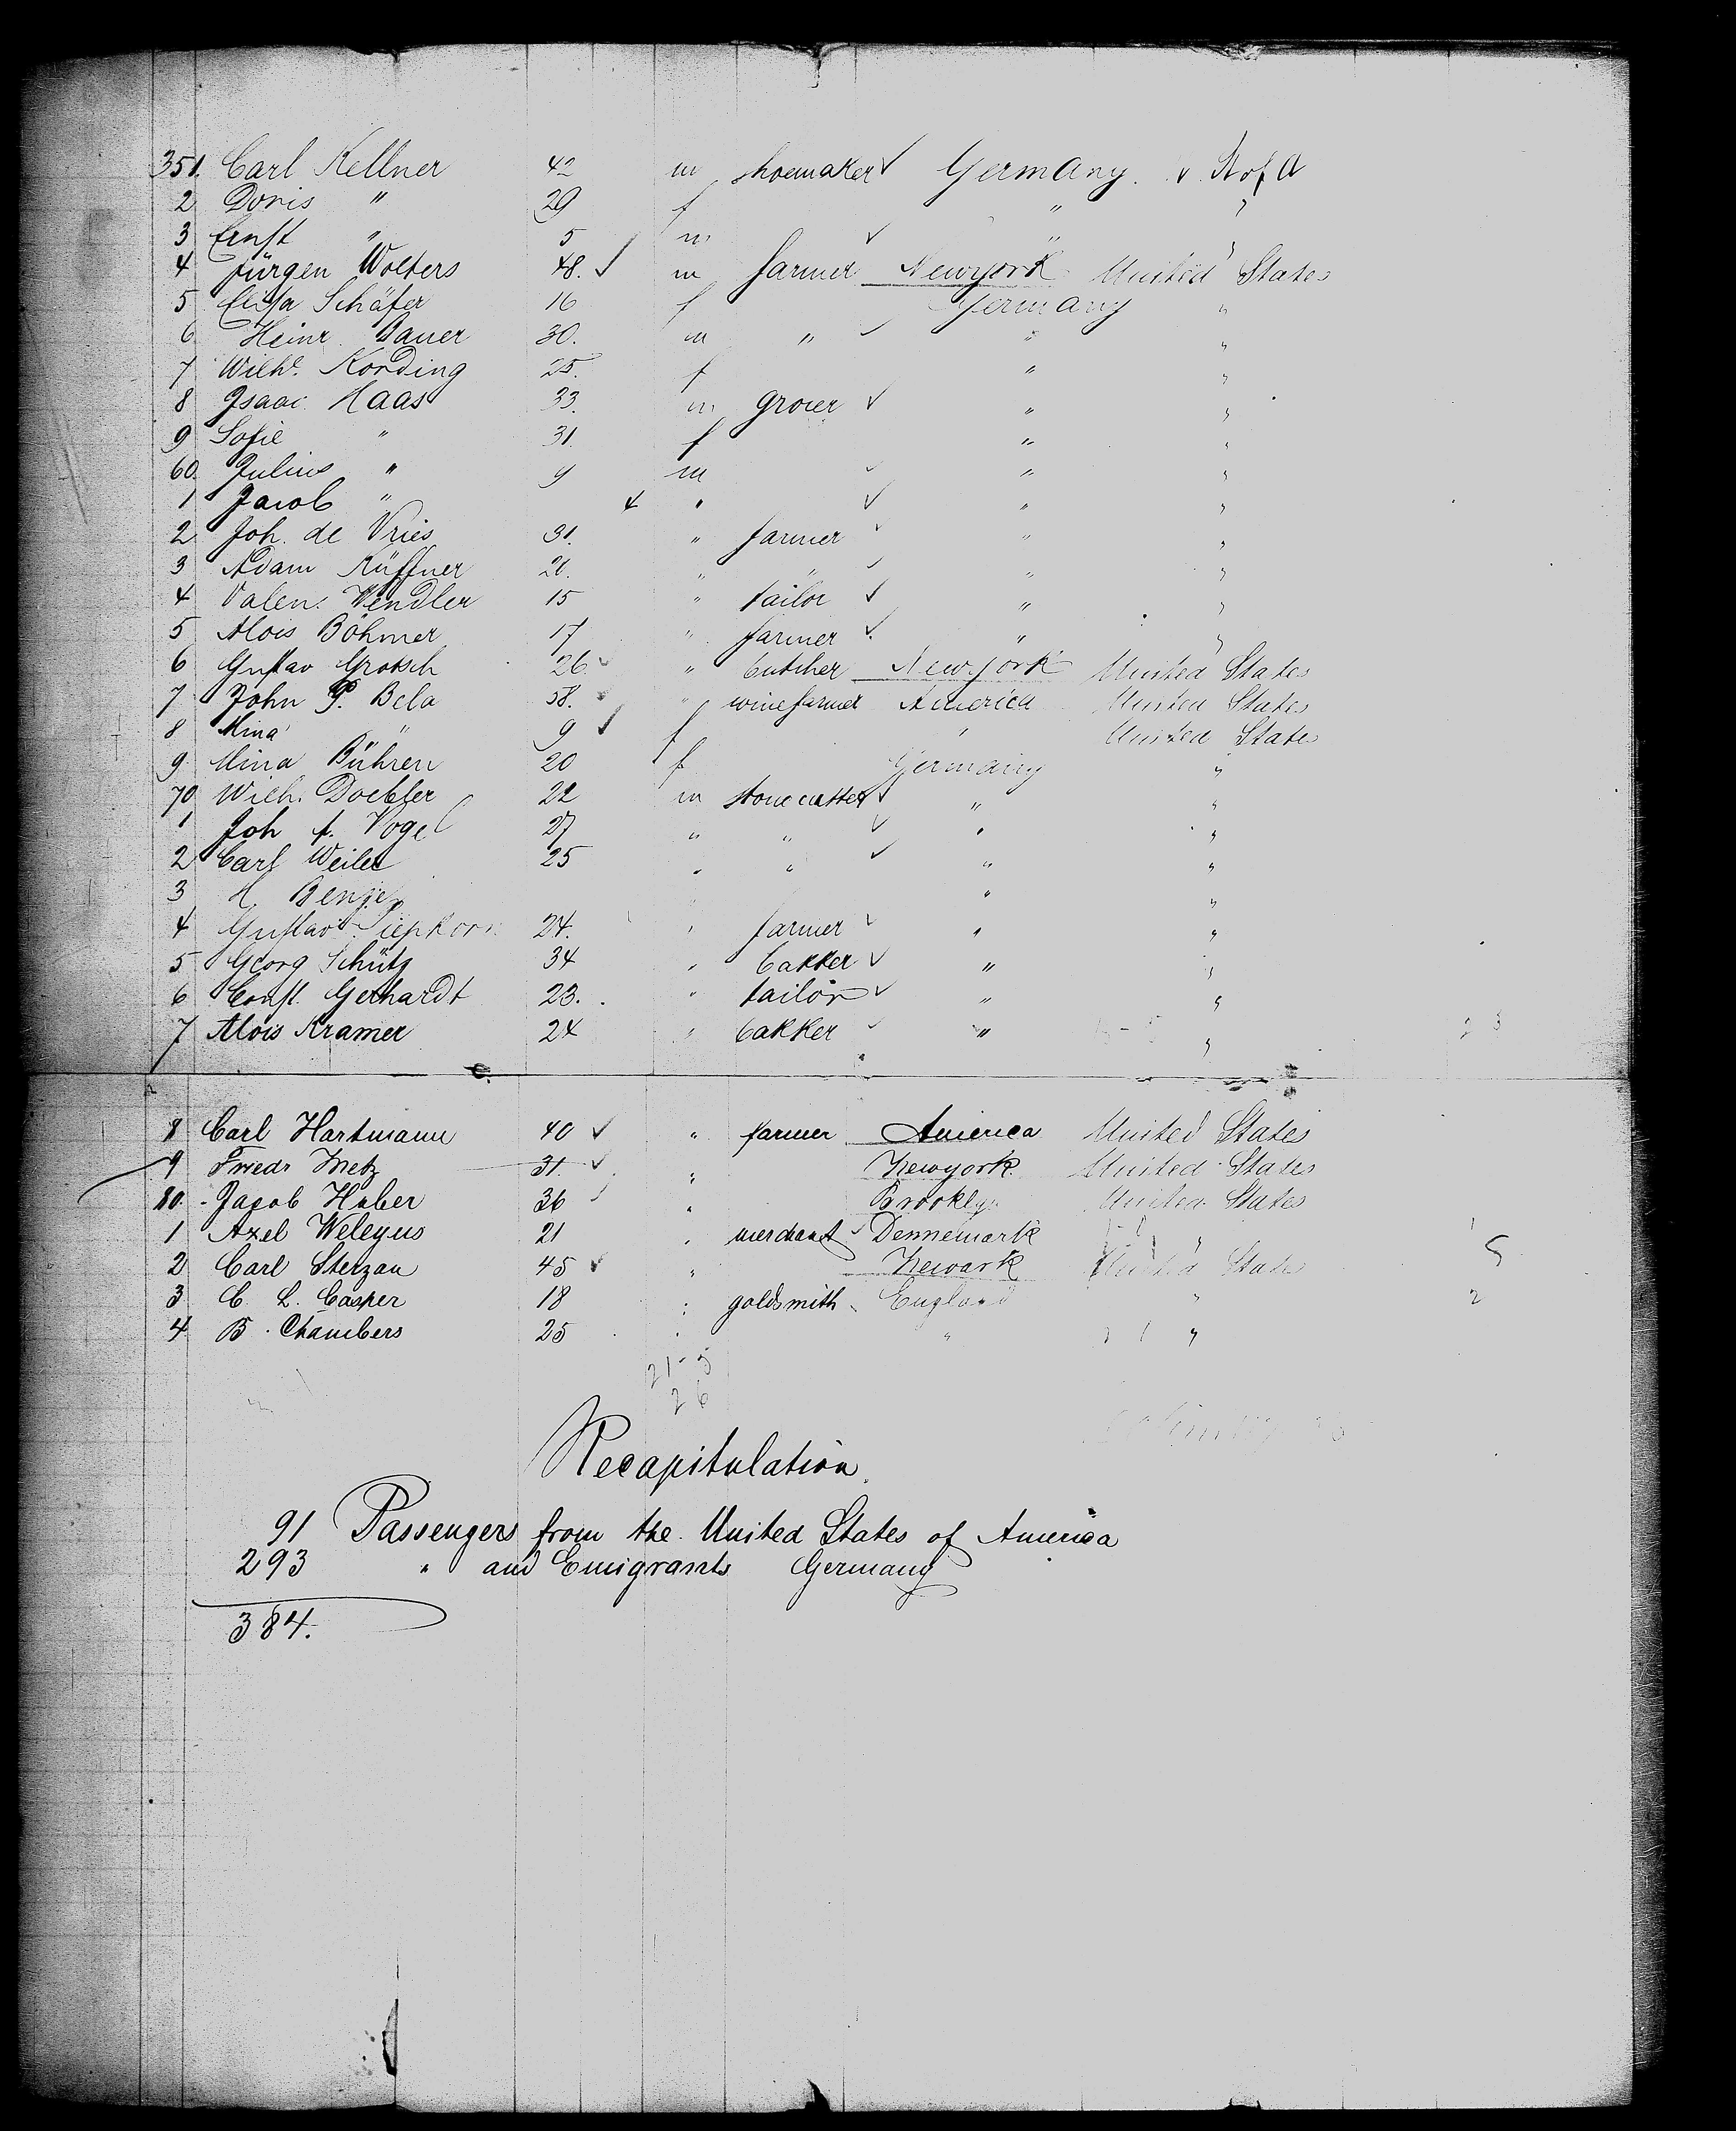 351. Carl Kellner 42 m shoemaker Germany. U. St of A
2 Doris " 29 f " "
3 Ernst " 5 m " "
4 Jürgen Wolters 48. m farmer Newyork United States
5 Elisa Schäfer 16 f Germany "
6 Heinr. Bauer 30. m " " "
7 Wilhe. Kording 25. f " "
8 Isaac Haas 33. m grocer " "
9 Sofie " 31. f " "
60. Julius " 9 m " "
1 Jacob " 4 " " "
2 Joh. de Vries 31. " farmer " "
3 Adam Küffner 20. " " " "
4 Valen. Wendler 15 " tailor " "
5 Alois Böhmer 17 " farmer " "
6 Gustav Grotsch 26. " butcher Newyork United States
7 John P. Bela 58. " winefarmer America United States
8 Mina " 9 f " United State
9 Mina Bühren 20 f Germany "
70 Wilh. Doebler 22 m stonecutter " "
1 Joh f. Vogel 27 " " " "
2 Carl Weiler 25 " " " "
3 H. Benje " " "
4 Gustav Siepkorn 24. " farmer " "
5 Georg Schütz 34 " bakker " "
6 Const. Gerhardt 23. " tailor " "
7 Alois Kramer 24 " bakker " "
8 Carl Hartmann 40 " farmer America United States
9 Friedr Metz 31. " Newyork United States
80. Jacob Huber 36 " Brooklyn United States
1 Axel Weleyus 21 " merchant Dennemark "
2 Carl Sterzau 45 " Newark United States
3 C. L. Casper 18 " goldsmith England "
4 B. Chambers 25 " " "
21-5
26
Recapitulation.
91 Passengers from the United States of America
293 " and Emigrants Germany
384.